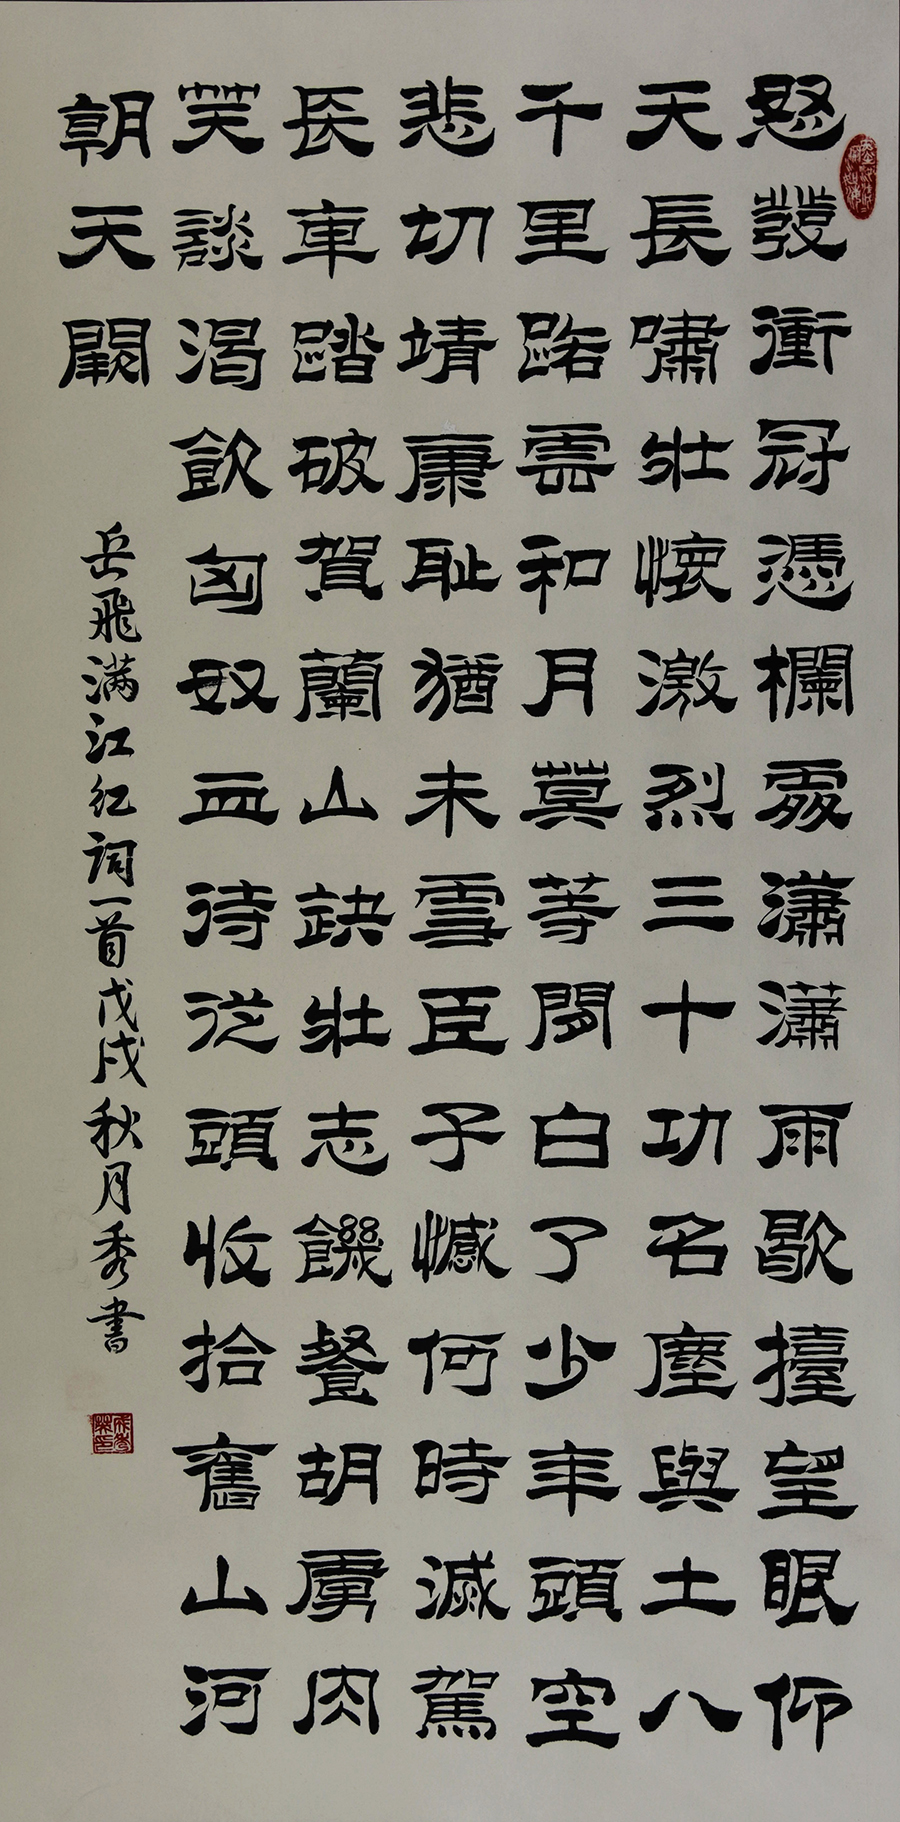 怒發衝冠憑欄處瀟瀟雨歇擡望眼仰
天長嘯壯懷激烈三十功名塵與土八
千里路雲和月莫等閒白了少年頭空
悲切靖康耻猶未雪臣子憾何時滅駕
長車踏破賀蘭山缺壯志饑餐胡虜肉
笑談渴飲匈奴血待從頭收拾舊山河
朝天闕
岳飛满江红詞一首戊戌秋月秀書